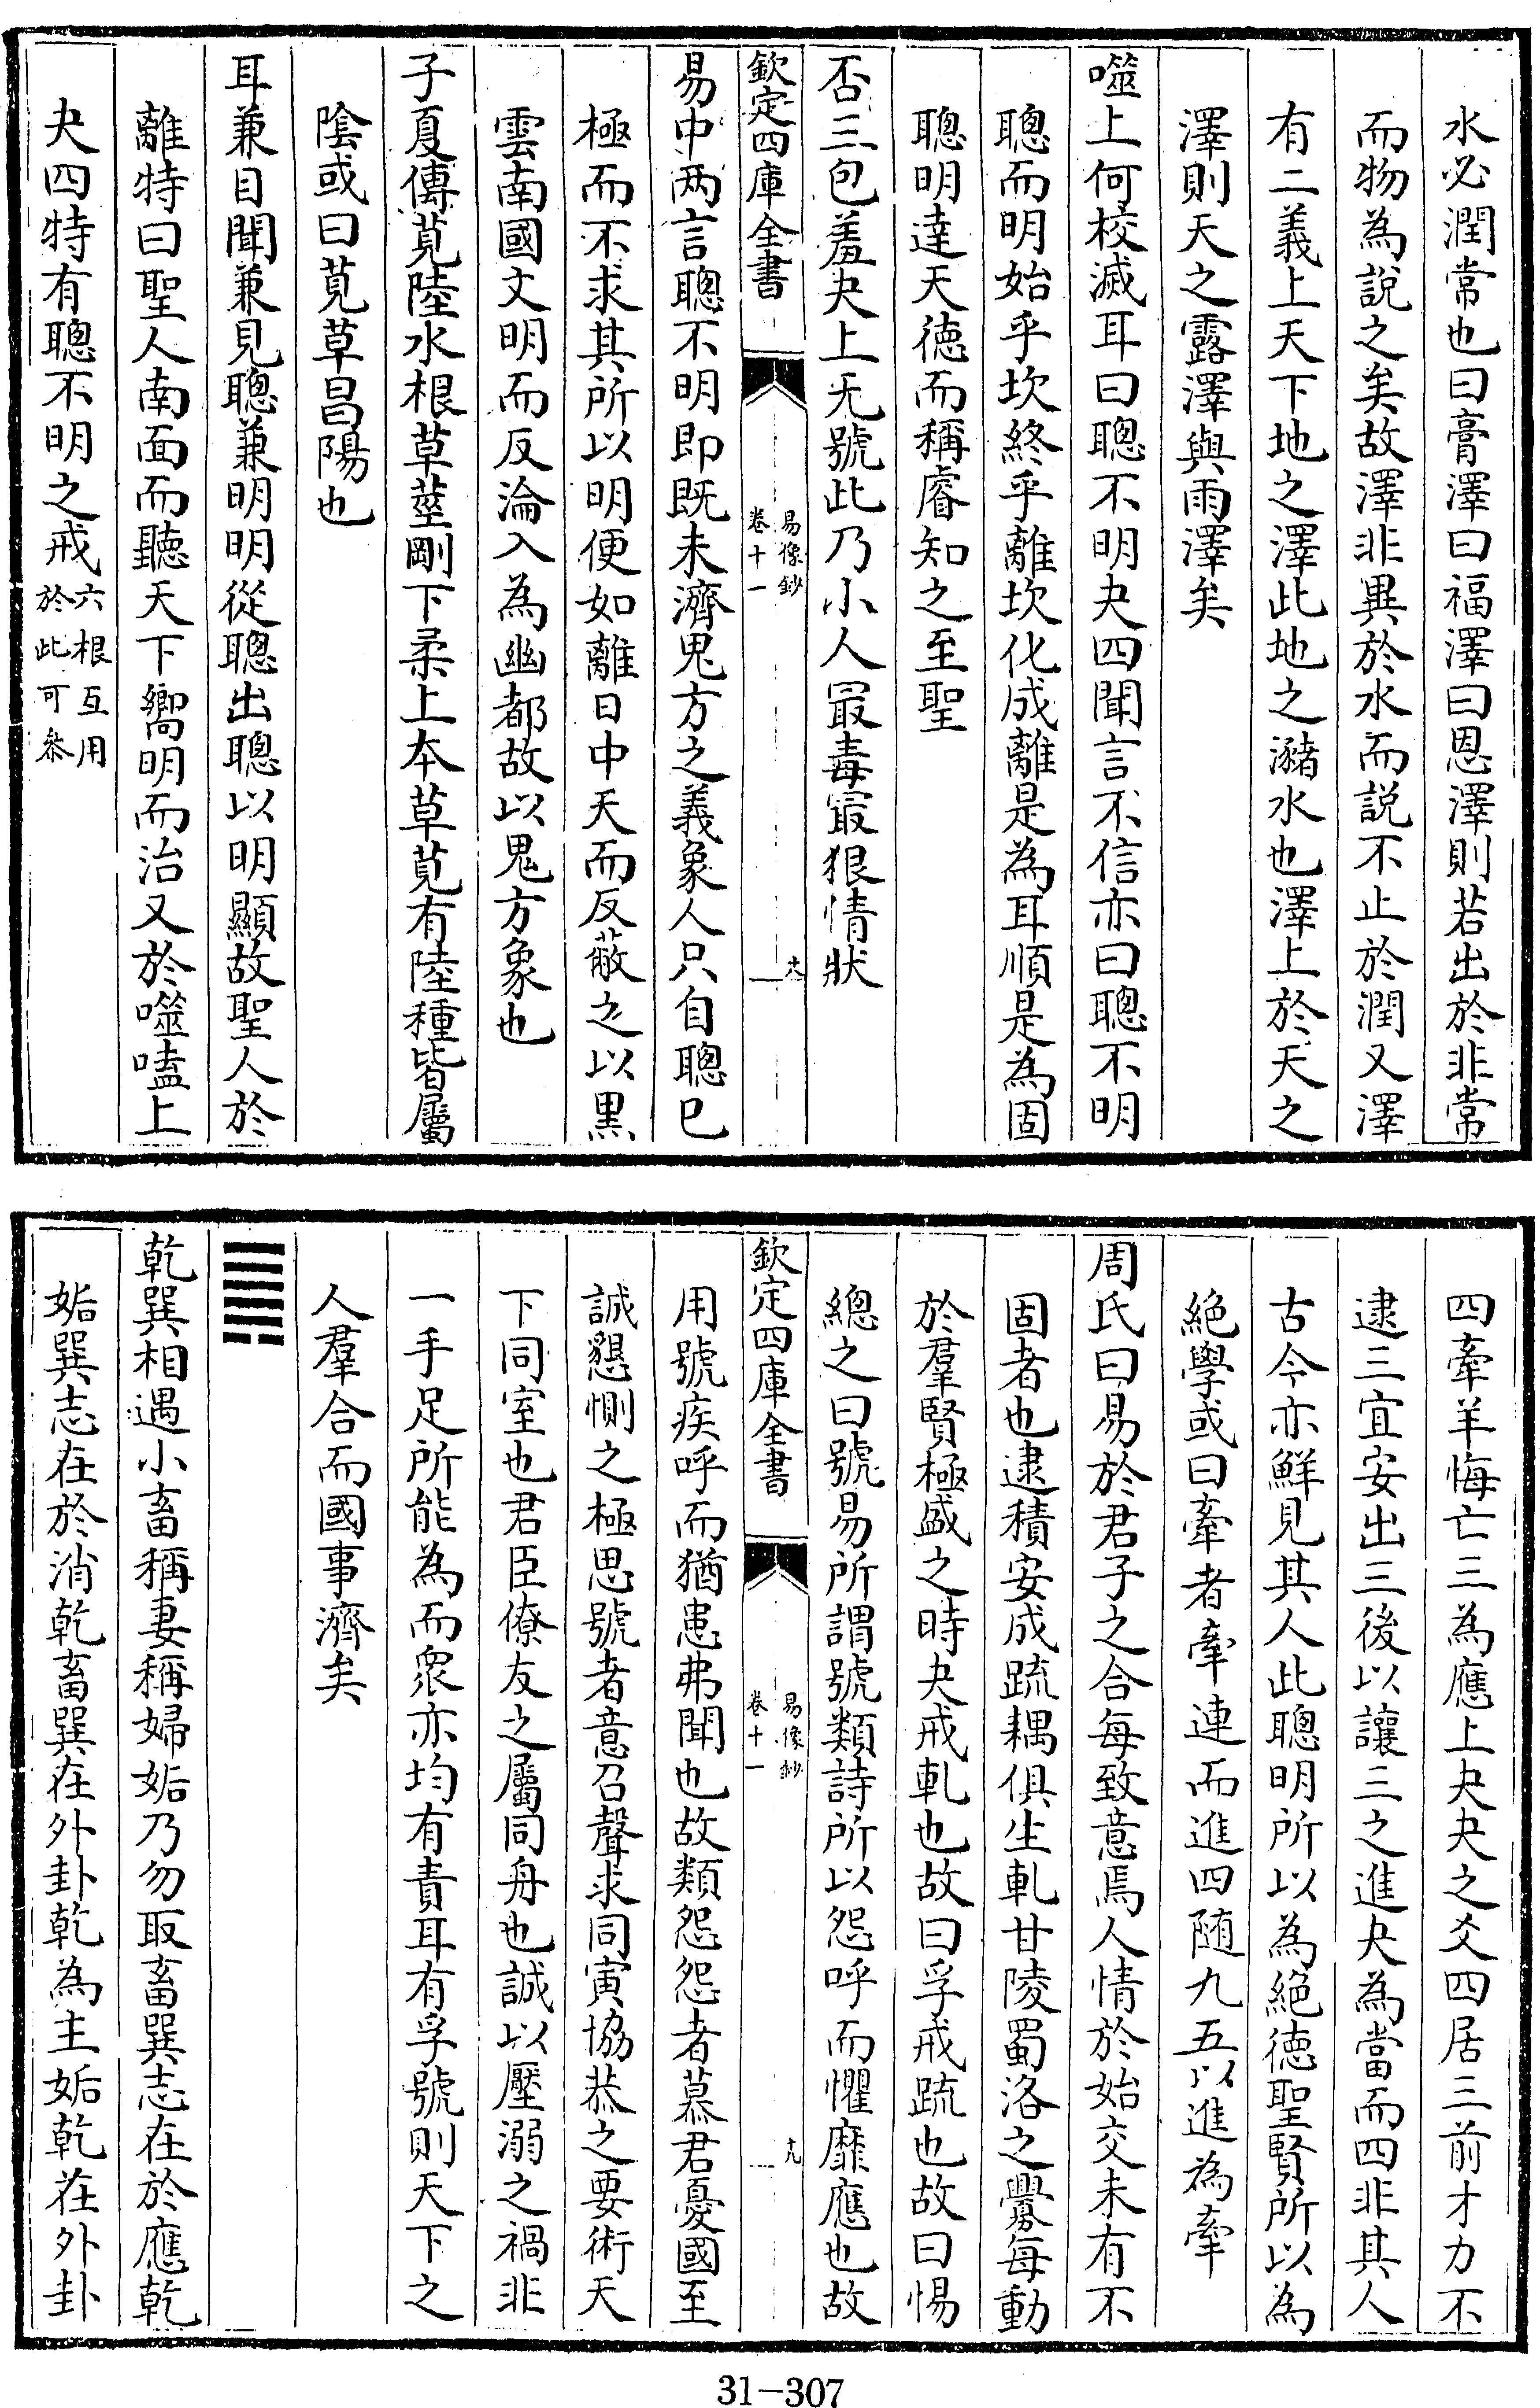 水必潤常也曰膏澤曰福澤曰恩澤則若出於非常
而物為說之矣故澤非異於水而説不止於潤又澤
有二義上天下地之澤此地之瀦水也澤上於天之
澤則天之露澤與雨澤矣
噬上何校滅耳曰聰不明夬四聞言不信亦曰聰不明
聰而明始乎坎終乎離坎化成離是為耳順是為固
聰明達天徳而稱睿知之至聖
否三包羞夬上无號此乃小人最毒最狠情狀
欽定四庫全書
易像鈔
卷十一
十八
易中两言聰不明即既未濟鬼方之義象人只自聰已
極而不求其所以明便如離日中天而反蔽之以黒
雲南國文明而反淪入為幽都故以鬼方象也
子夏傳莧陸水根草莖剛下柔上本草莧有陸種皆屬
陰或曰莧草昌陽也
耳兼目聞兼見聰兼明明從聰出聰以明顯故聖人於
離特曰聖人南面而聽天下嚮明而治又於噬嗑上
夬四特有聰不明之戒六根互用
於此可叅
四牽羊悔亡三為應上夬夬之爻四居三前才力不
逮三宜安出三後以讓三之進夬為當而四非其人
古今亦鮮見其人此聰明所以為絶徳聖賢所以為
絶學或曰牽者牽連而進四随九五以進為牽
周氏曰易於君子之合每致意焉人情於始交未有不
固者也逮積安成疏耦俱生軋甘陵蜀洛之釁每動
於羣賢極盛之時夬戒軋也故曰孚戒疏也故曰惕
總之曰號易所謂號類詩所以怨呼而懼靡應也故
欽定四庫全書
易像鈔
卷十一
十九
用號疾呼而猶患弗聞也故類怨怨者慕君憂國至
誠懇惻之極思號者意召聲求同寅協恭之要術天
下同室也君臣僚友之屬同舟也誠以壓溺之禍非
一手足所能為而衆亦均有責耳有孚號則天下之
人羣合而國事濟矣
乾巽相遇小畜稱妻稱婦姤乃勿取畜巽志在於應乾
姤巽志在於消乾畜巽在外卦乾為主姤乾在外卦
31-307